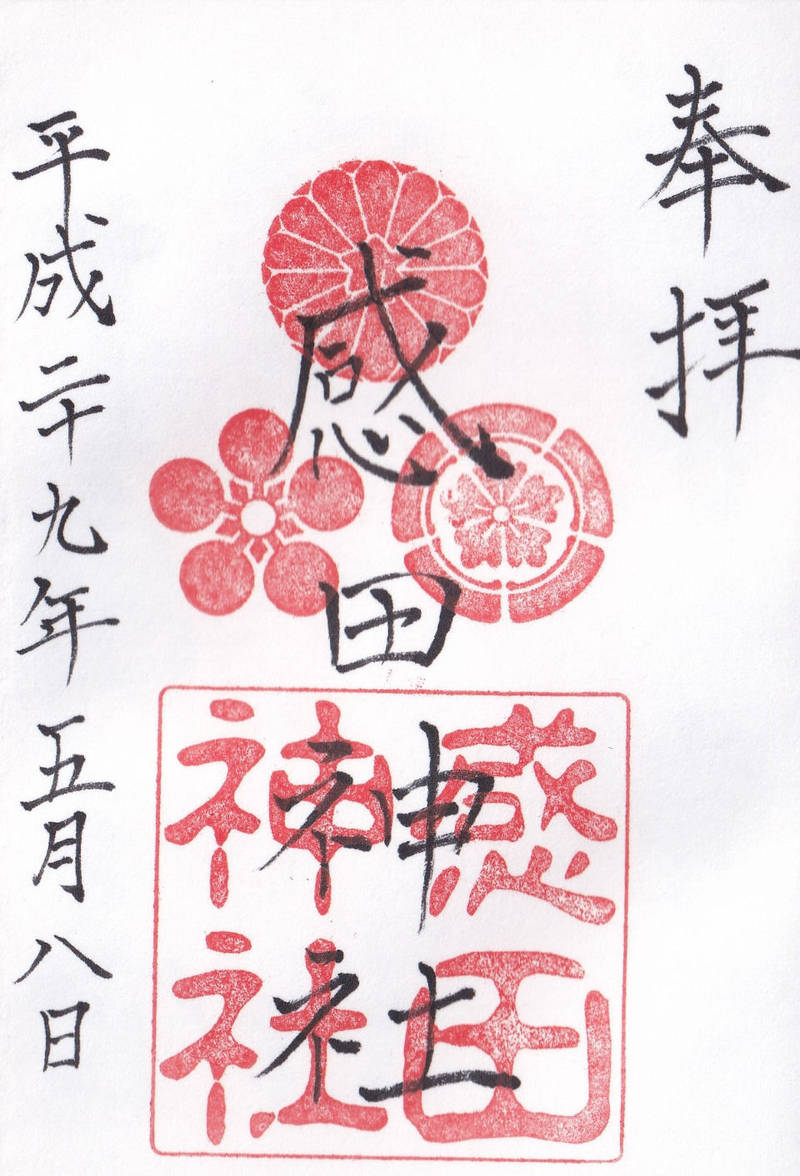 奉拝
感田神社
感田
神社
平成二十九年五月八日